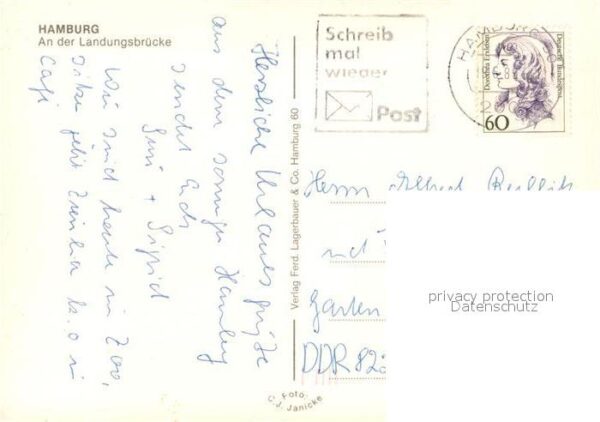 HAMBURG
An der Landungsbrücke
Herzliche Urlaubsgrüße
aus dem sonnigen Hamburg
sendet Euch
Susi + Sigrid
Wir sind heute im Zoo,
sitzen jetzt
Cafe
Verlag Ferd. Lagerbauer & Co. Hamburg 60
Foto:
C.J. Janicke
Schreib
mal
wieder
Post
HAMBURG
Dorothea Erxleben
Deutsche Bundespost
60
Herrn Alfred
Garten
DDR 82
privacy protection
Datenschutz